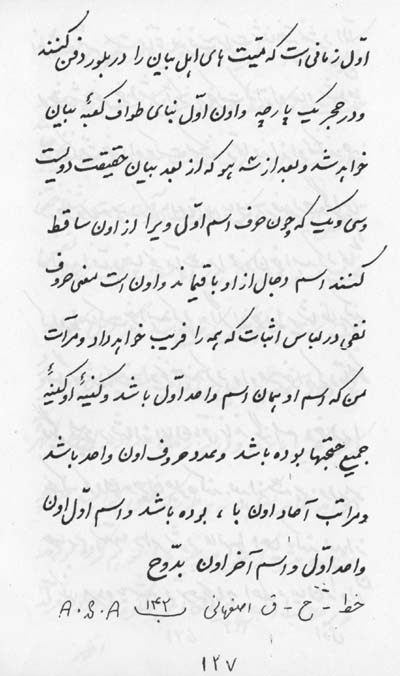 اوّل زمانی است که میّت های اهل بیان را در بلور دفن کنند
و در حجر یک پارچه و اون اوّل بنای طواف کعبهٔ بیان
خواهد شد و بعد از هو که از بعد بیان حقیقت دویست
و سی و یک که چون حرف اسم اوّل ویرا از اون ساقط
کنند اسم دجال از او باقیماند و اون است معنی حروف
نفی در لباس اثبات که همه را فریب خواهد داد و مرآت
من که اسم او همان اسم واحد اوّل باشد و کنیهٔ او کنیهٔ
جمیع حجتها بوده باشد و عدد حروف اون واحد باشد
و مراتب آحاد اون با ، بوده باشد و اسم اوّل اون
واحد اوّل و اسم آخر اون بدّوح
خط - ح - ق اصفهانی ۱۴۲ A.S.A
۱۲۷